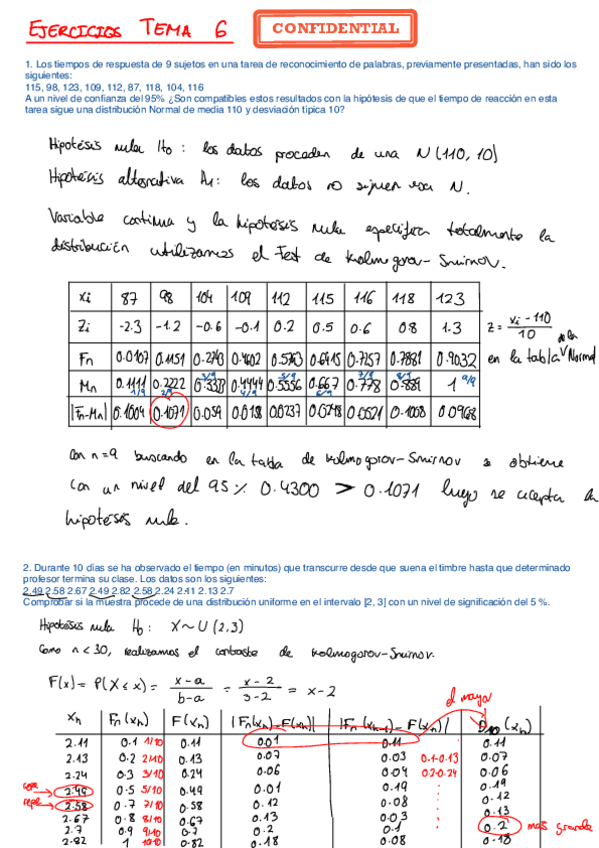 EJERCICIOS TEMA 6
CONFIDENTIAL
1. Los tiempos de respuesta de 9 sujetos en una tarea de reconocimiento de palabras, previamente presentadas, han sido los
siguientes:
115, 98, 123, 109, 112, 87, 118, 104, 116
A un nivel de confianza del 95% ¿Son compatibles estos resultados con la hipótesis de que el tiempo de reacción en esta
tarea sigue una distribución Normal de media 110 y desviación típica 10?
Hipótesis nula H0: los datos proceden de una N(110, 10)
Hipótesis alternativa H1: los datos no siguen esa N.
Variable continua y la hipótesis nula especifica totalmente la
distribución utilizamos el Test de Kolmogorov-Smirnov.
xi 87 98 104 109 112 115 116 118 123
Zi -2.3 -1.2 -0.6 -0.1 0.2 0.5 0.6 0.8 1.3 z = xi - 110 / 10
Fn 0.0107 0.1151 0.2743 0.4602 0.5793 0.6915 0.7257 0.7881 0.9032 en la tabla de la Normal
Mn 0.1111 0.2222 0.333 0.4444 0.5556 0.667 0.778 0.889 1
1/9 2/9 3/9 4/9 5/9 6/9 7/9 8/9 9/9
|Fn-Mn| 0.1004 0.1071 0.059 0.0158 0.0237 0.0248 0.0521 0.1008 0.0968
Con n=9 buscando en la tabla de Kolmogorov-Smirnov se obtiene
con un nivel del 95% 0.4300 > 0.1071 luego se acepta la
hipótesis nula.
2. Durante 10 días se ha observado el tiempo (en minutos) que transcurre desde que suena el timbre hasta que determinado
profesor termina su clase. Los datos son los siguientes:
2.49 2.58 2.67 2.49 2.82 2.58 2.24 2.11 2.13 2.7
Comprobar si la muestra procede de una distribución uniforme en el intervalo [2, 3] con un nivel de significación del 5 %.
Hipótesis nula H0: X~U(2,3)
Como n<30, realizamos el contraste de Kolmogorov-Smirnov.
F(x) = P(X ≤ x) = x-a / b-a = x-2 / 3-2 = x-2
el mayor
xn Fn(xn) F(xn) |Fn(xn)-F(xn)| |Fn(xn-1)-F(xn)| D10(xn)
2.11 0.1 1/10 0.11 0.01 0.11 0.11
2.13 0.2 2/10 0.13 0.07 0.03 0.1-0.13 0.07
2.24 0.3 3/10 0.24 0.06 0.04 0.2-0.24 0.06
2.49 0.5 5/10 0.49 0.01 0.19 0.19
2.58 0.7 7/10 0.58 0.12 0.08 0.12
2.67 0.8 8/10 0.67 0.13 0.03 0.13
2.7 0.9 9/10 0.7 0.2 0.1 0.2 más grande
2.82 1 10/10 0.82 0.18 0.08 0.18